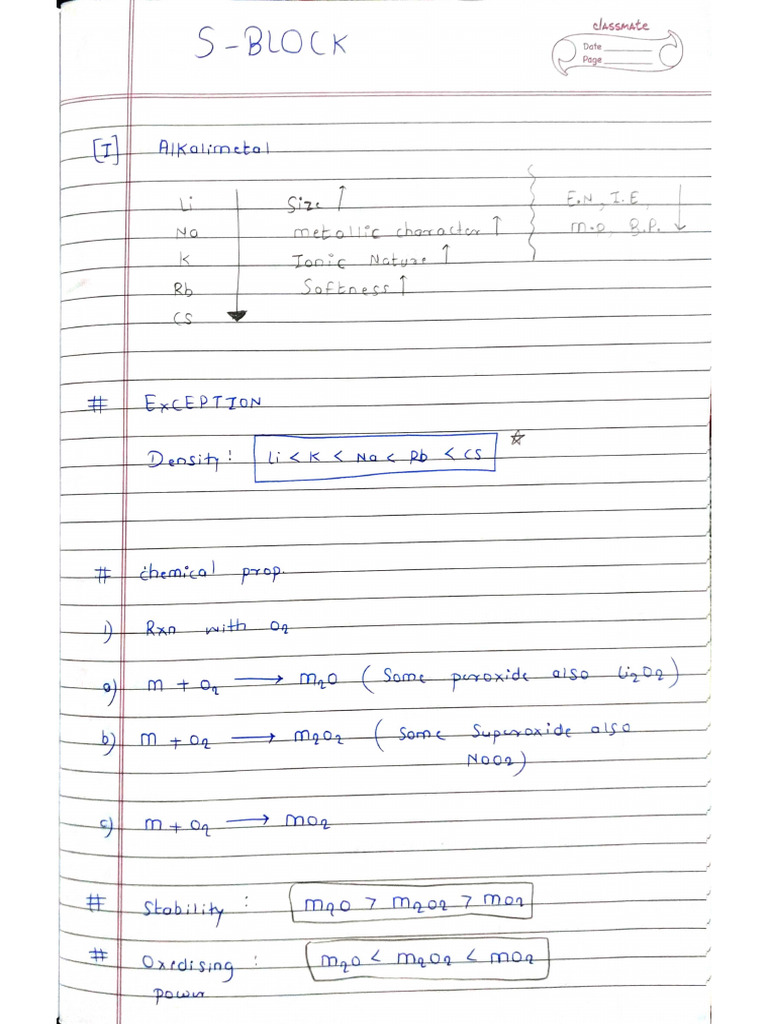 classmate
Date
Page
S-BLOCK
[I] Alkalimetal
Li Size ↑ E.N, I.E,
Na metallic character ↑ M.P, B.P. ↓
K Ionic Nature ↑
Rb Softness ↑
Cs
# EXCEPTION
Density: Li < K < Na < Rb < Cs ☆
# chemical prop.
1) Rxn with O₂
a) M + O₂ ⟶ M₂O ( Some peroxide also Li₂O₂)
b) M + O₂ ⟶ M₂O₂ ( Some Superoxide also
NaO₂)
c) M + O₂ ⟶ MO₂
# Stability : M₂O > M₂O₂ > MO₂
# Oxidising : M₂O < M₂O₂ < MO₂
power